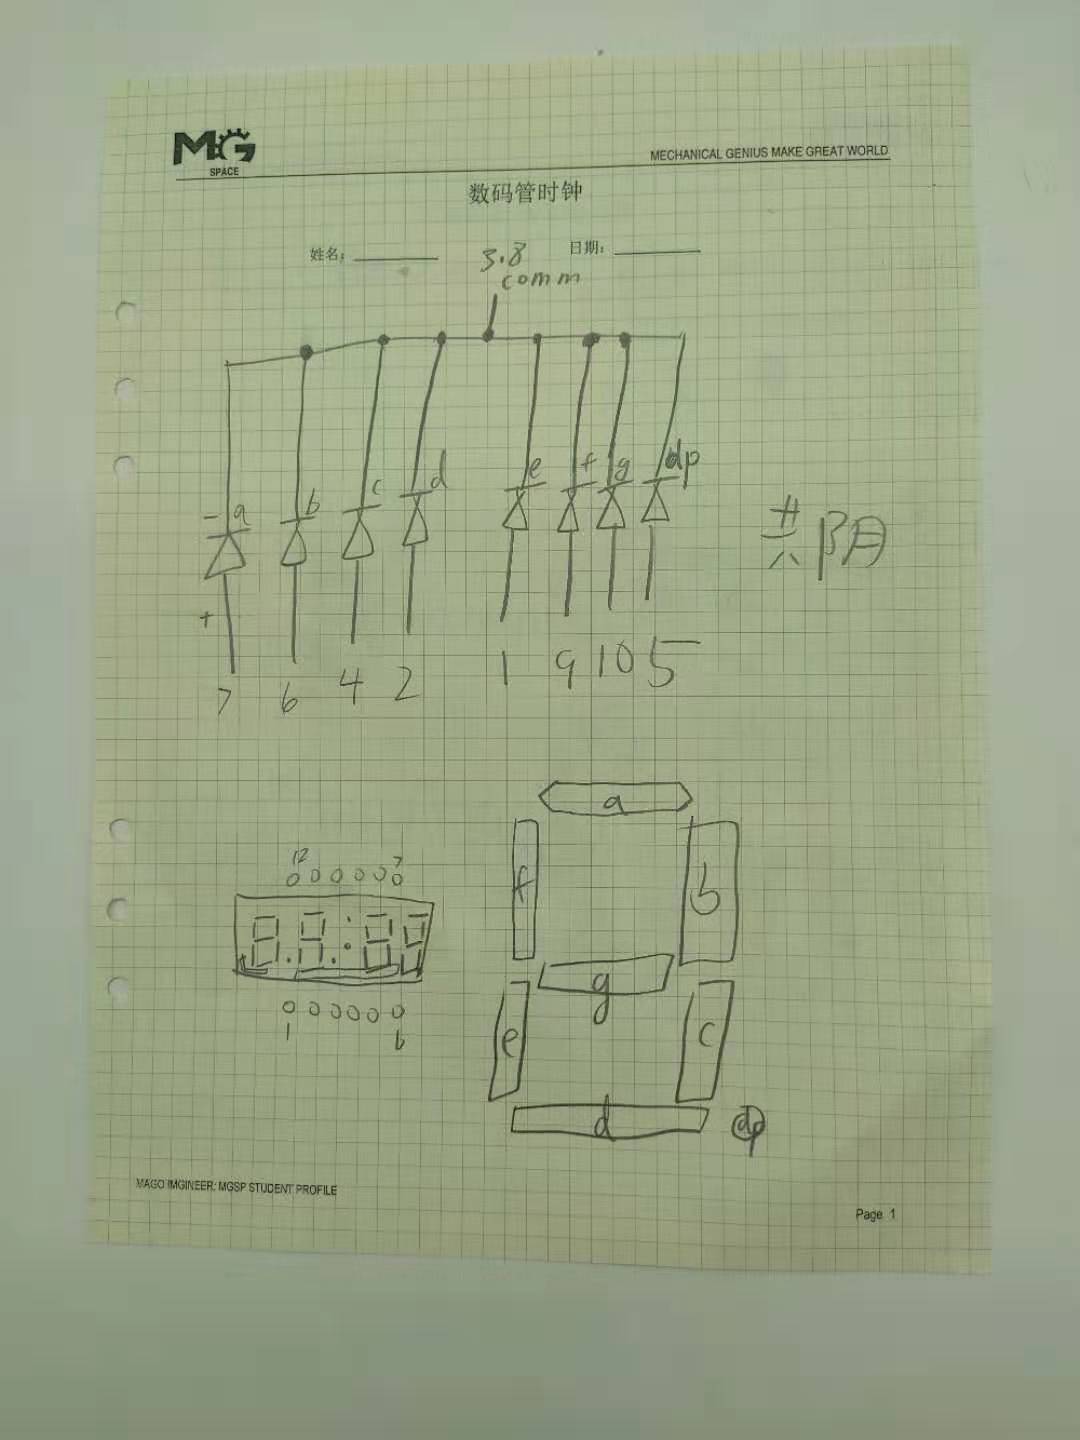 MG
SPACE
MECHANICAL GENIUS MAKE GREAT WORLD
数码管时钟
姓名: 日期:
3.8
comm
- a b c d e f g dp
共阴
+
7 6 4 2 1 9 10 5
a
f b
g
e c
d dp
12 7
1 6
MAGO IMGINEER: MGSP STUDENT PROFILE
Page 1